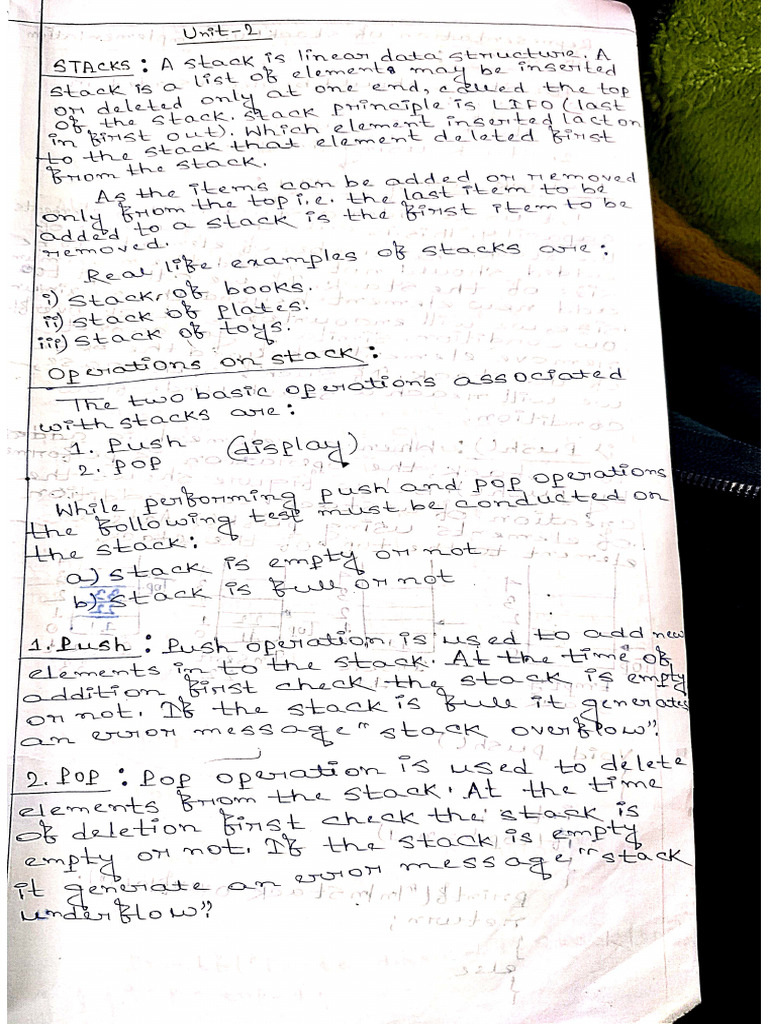 Unit-2
STACKS : A stack is linear data structure. A
stack is a list of elements may be inserted
or deleted only at one end, called the top
of the stack. stack principle is LIFO (last
in first out). Which element inserted last on
to the stack that element deleted first
from the stack.
As the items can be added or removed
only from the top i.e. the last item to be
added to a stack is the first item to be
removed.
Real life examples of stacks are:
i) stack of books.
ii) stack of plates.
iii) stack of toys.
Operations on stack :
The two basic operations associated
with stacks are :
1. Push (display)
2. POP
While performing push and pop operations
the following test must be conducted on
the stack:
a) stack is empty or not
b) stack is full or not
1. Push : Push operation is used to add new
elements in to the stack. At the time of
addition first check the stack is empty
or not. If the stack is full it generates
an error message "stack overflow".
2. POP : Pop operation is used to delete
elements from the stack. At the time
of deletion first check the stack is
empty or not. If the stack is empty
it generate an error message "stack
underflow".